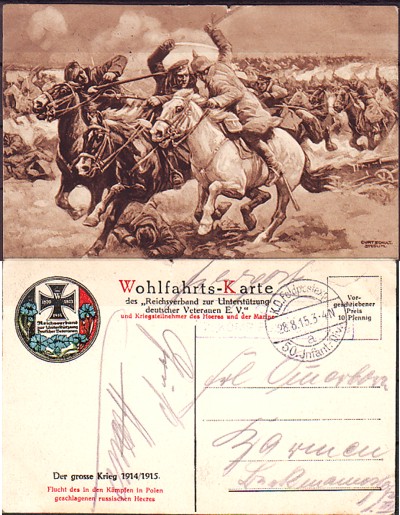 CURT SCHULZ
Wohlfahrts-Karte
des „Reichsverband zur Unterstützung
deutscher Veteranen E. V."
und Kriegsteilnehmer des Heeres und der Marine
Vor-
geschriebener
Preis
10 Pfennig
1870 1871
1914
Reichsverband
zur Unterstützung
deutscher Veteranen
K.D. Feldpostexp.
28.8.15. 3-4N
a
50. Infant. Div.
Frl
Barmen
Der grosse Krieg 1914/1915.
Flucht des in den Kämpfen in Polen
geschlagenen russischen Heeres